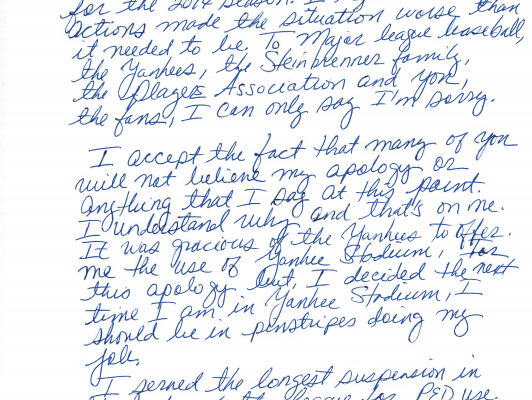 for the 2014 season. I
actions made the situation worse than
it needed to be. To Major League Baseball,
the Yankees, the Steinbrenner family,
the Players Association and you,
the fans, I can only say I'm sorry.
I accept the fact that many of you
will not believe my apology or
anything that I say at this point.
I understand why and that's on me.
It was gracious of the Yankees to offer
me the use of Yankee Stadium, for
this apology but, I decided the next
time I am in Yankee Stadium, I
should be in pinstripes doing my
job.
I served the longest suspension in
the league for PED use.